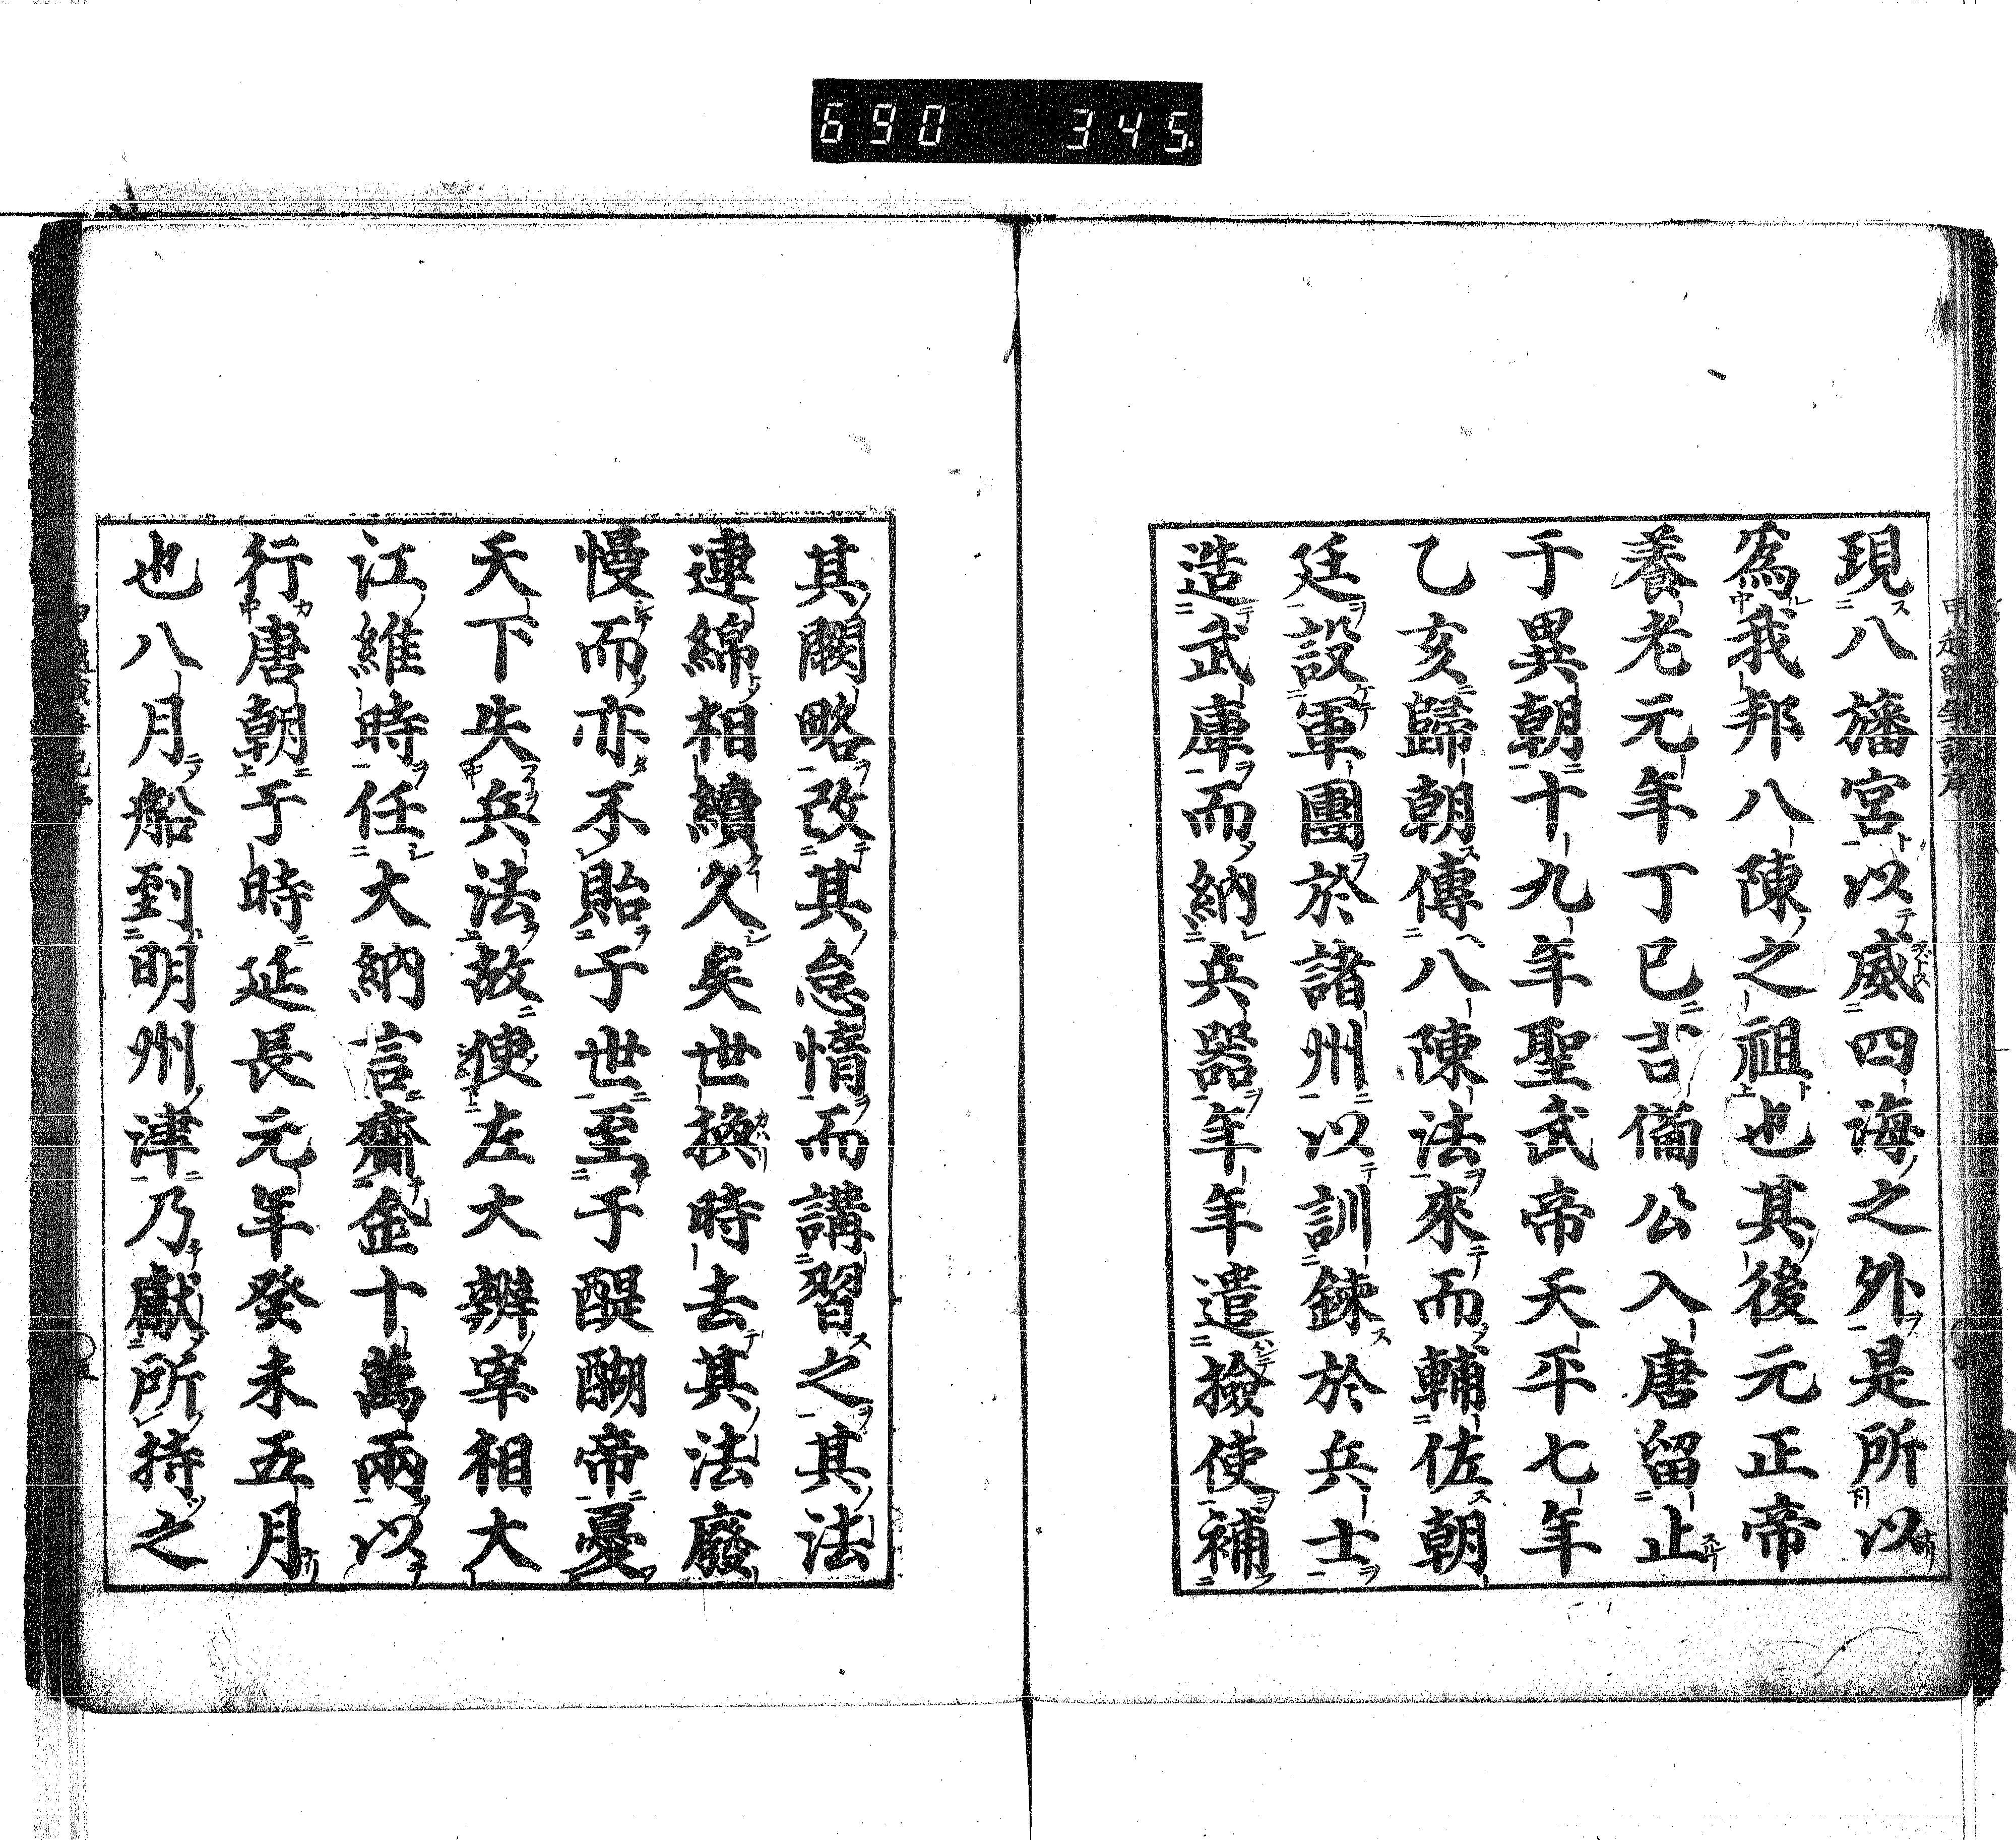 690 345
現八旛宮以威四海之外是所以
爲我邦八陳之祖也其後元正帝
養老元年丁巳吉備公入唐留止
于異朝十九年聖武帝天平七年
乙亥歸朝傳八陳法來而輔佐朝
廷設軍團於諸州以訓錬於兵士
造武庫而納兵器年年遣撿使補
其闕略改其怠惰而講習之其法
連綿相續久矣世換時去其法廢
慢而亦不貽于世至于醍醐帝憂
天下失兵法故使左大辨宰相大
江維時任大納言齎金十萬兩以
行唐朝于時延長元年癸未五月
也八月船到明州津乃獻所持之